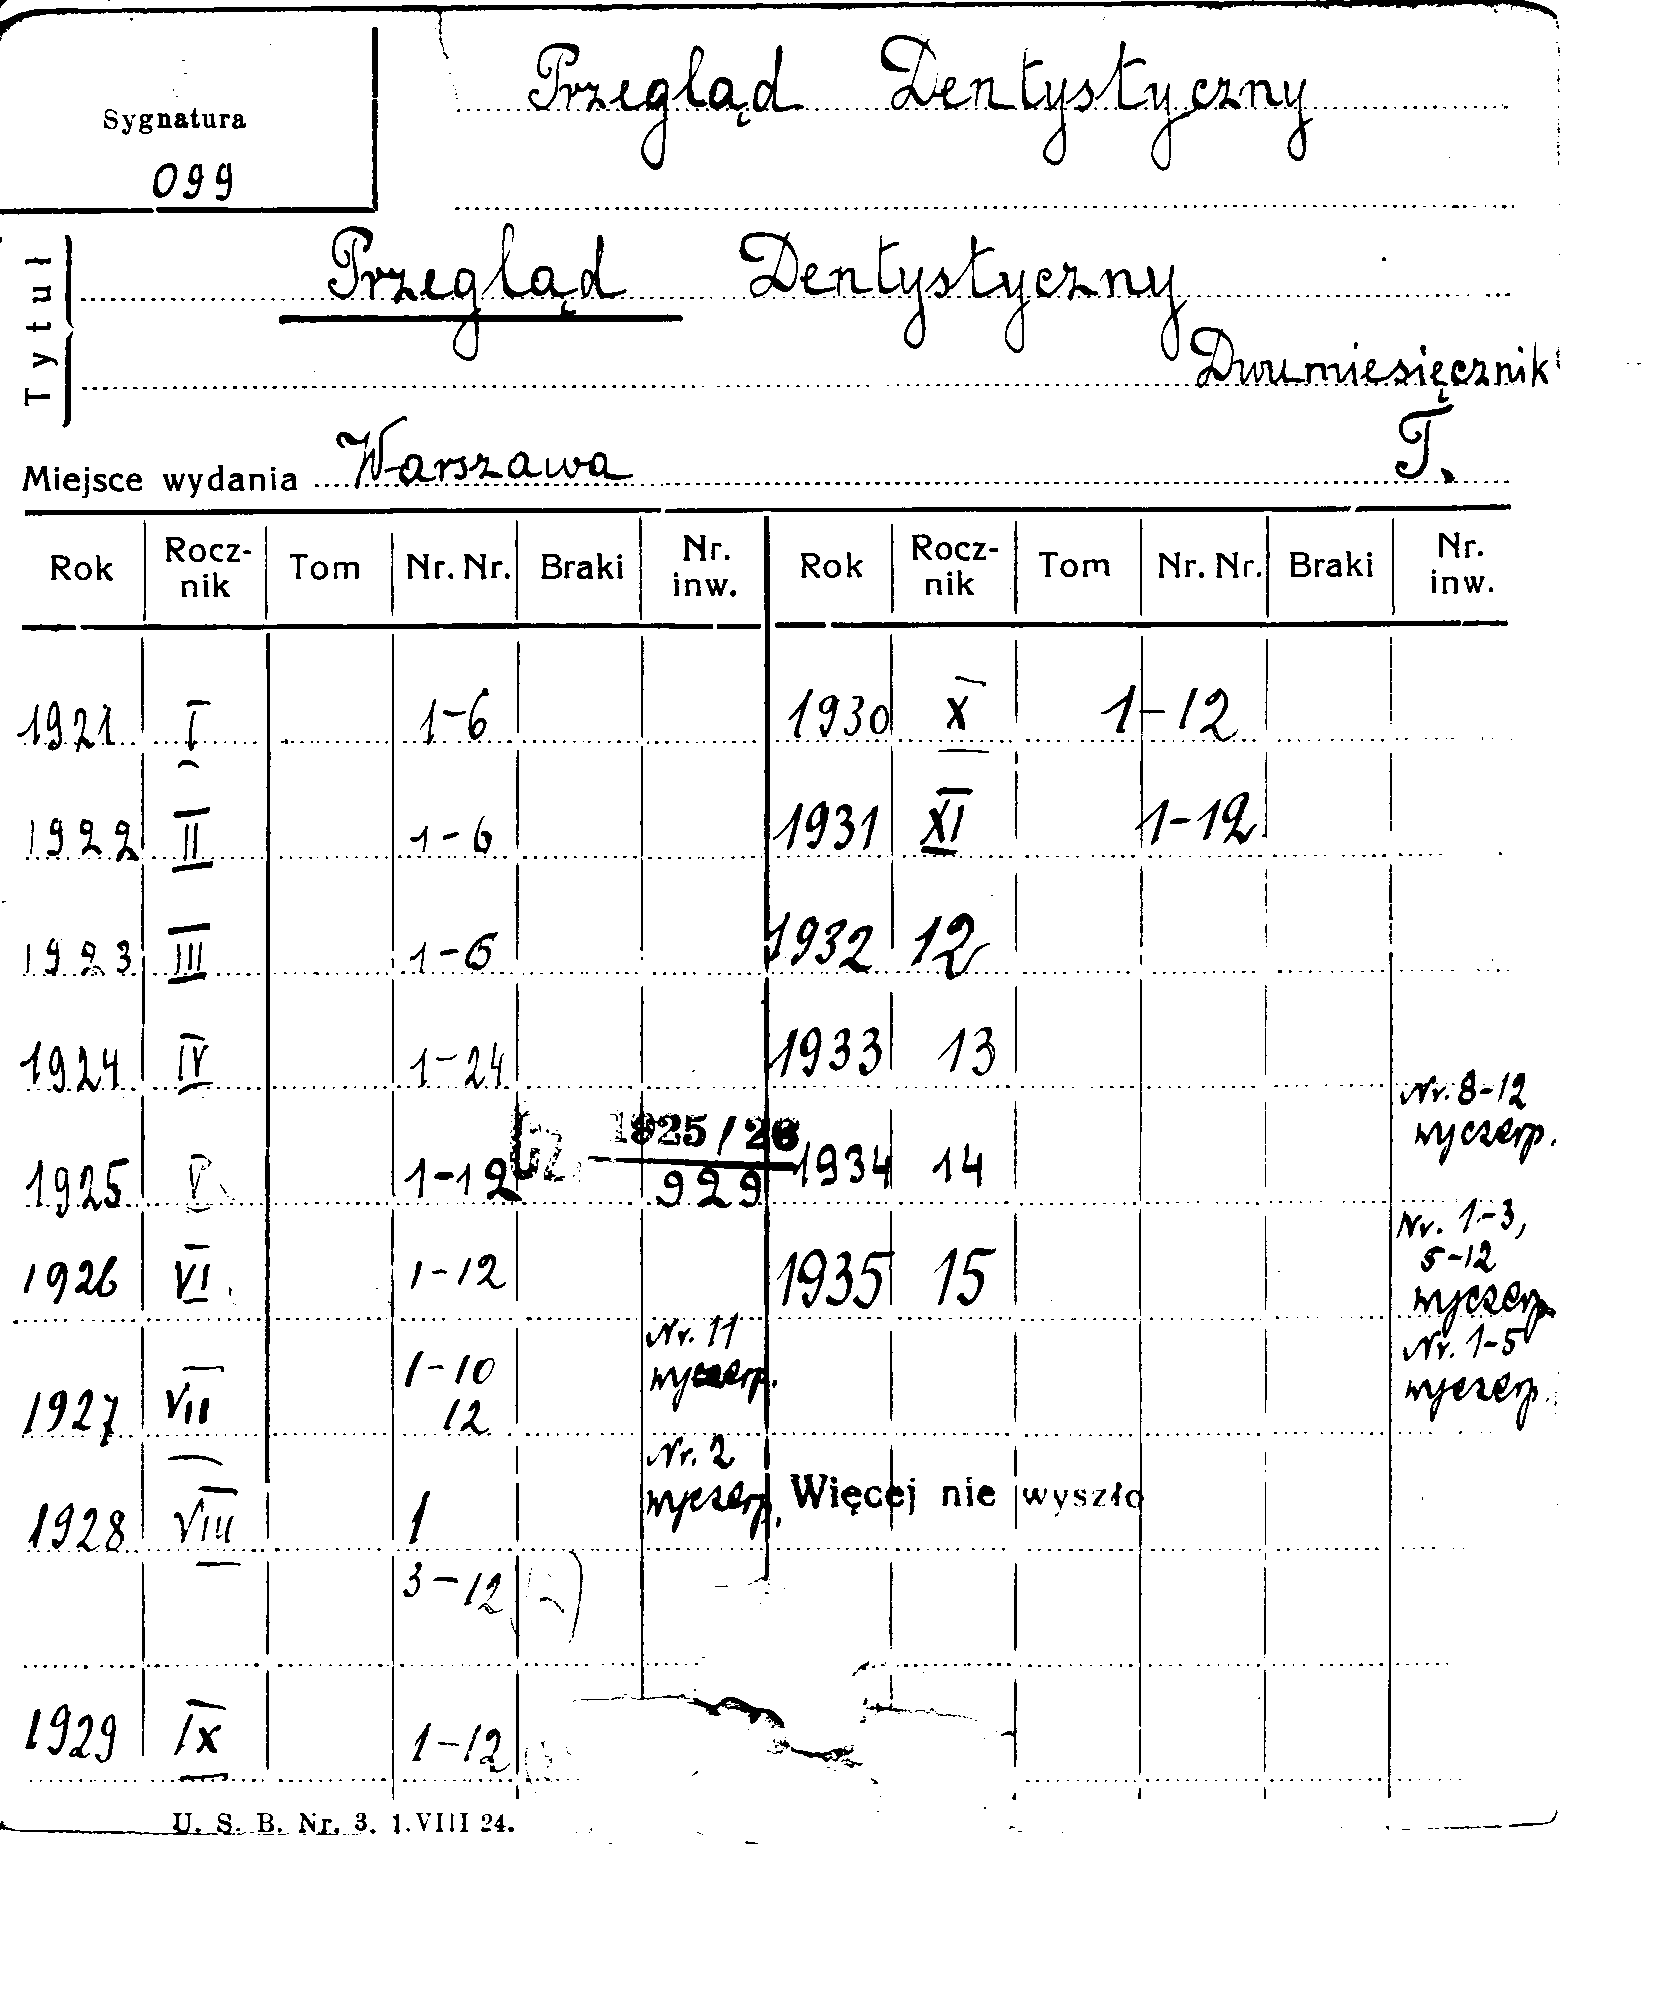 Przegląd Dentystyczny
Sygnatura
099
Tytuł
Przegląd Dentystyczny
Dwumiesięcznik
Miejsce wydania Warszawa T.
Rok Rocznik Tom Nr. Nr. Braki Nr. inw. Rok Rocznik Tom Nr. Nr. Braki Nr. inw.
1921 I 1-6 1930 X 1-12
1922 II 1-6 1931 XI 1-12
1923 III 1-6 1932 12
1924 IV 1-24 1933 13
Nr. 8-12
wyczerp.
Cz. 1925/26
1925 V 1-12 929 1934 14
Nr. 1-3,
5-12
wyczerp.
1926 VI 1-12 1935 15
Nr. 11
wyczerp.
Nr. 1-5
wyczerp.
1-10
1927 VII 12
Nr. 2
wyczerp.
Więcej nie wyszło
1928 VIII 1
3-12
1929 IX 1-12
U. S. B. Nr. 3. 1.VIII 24.